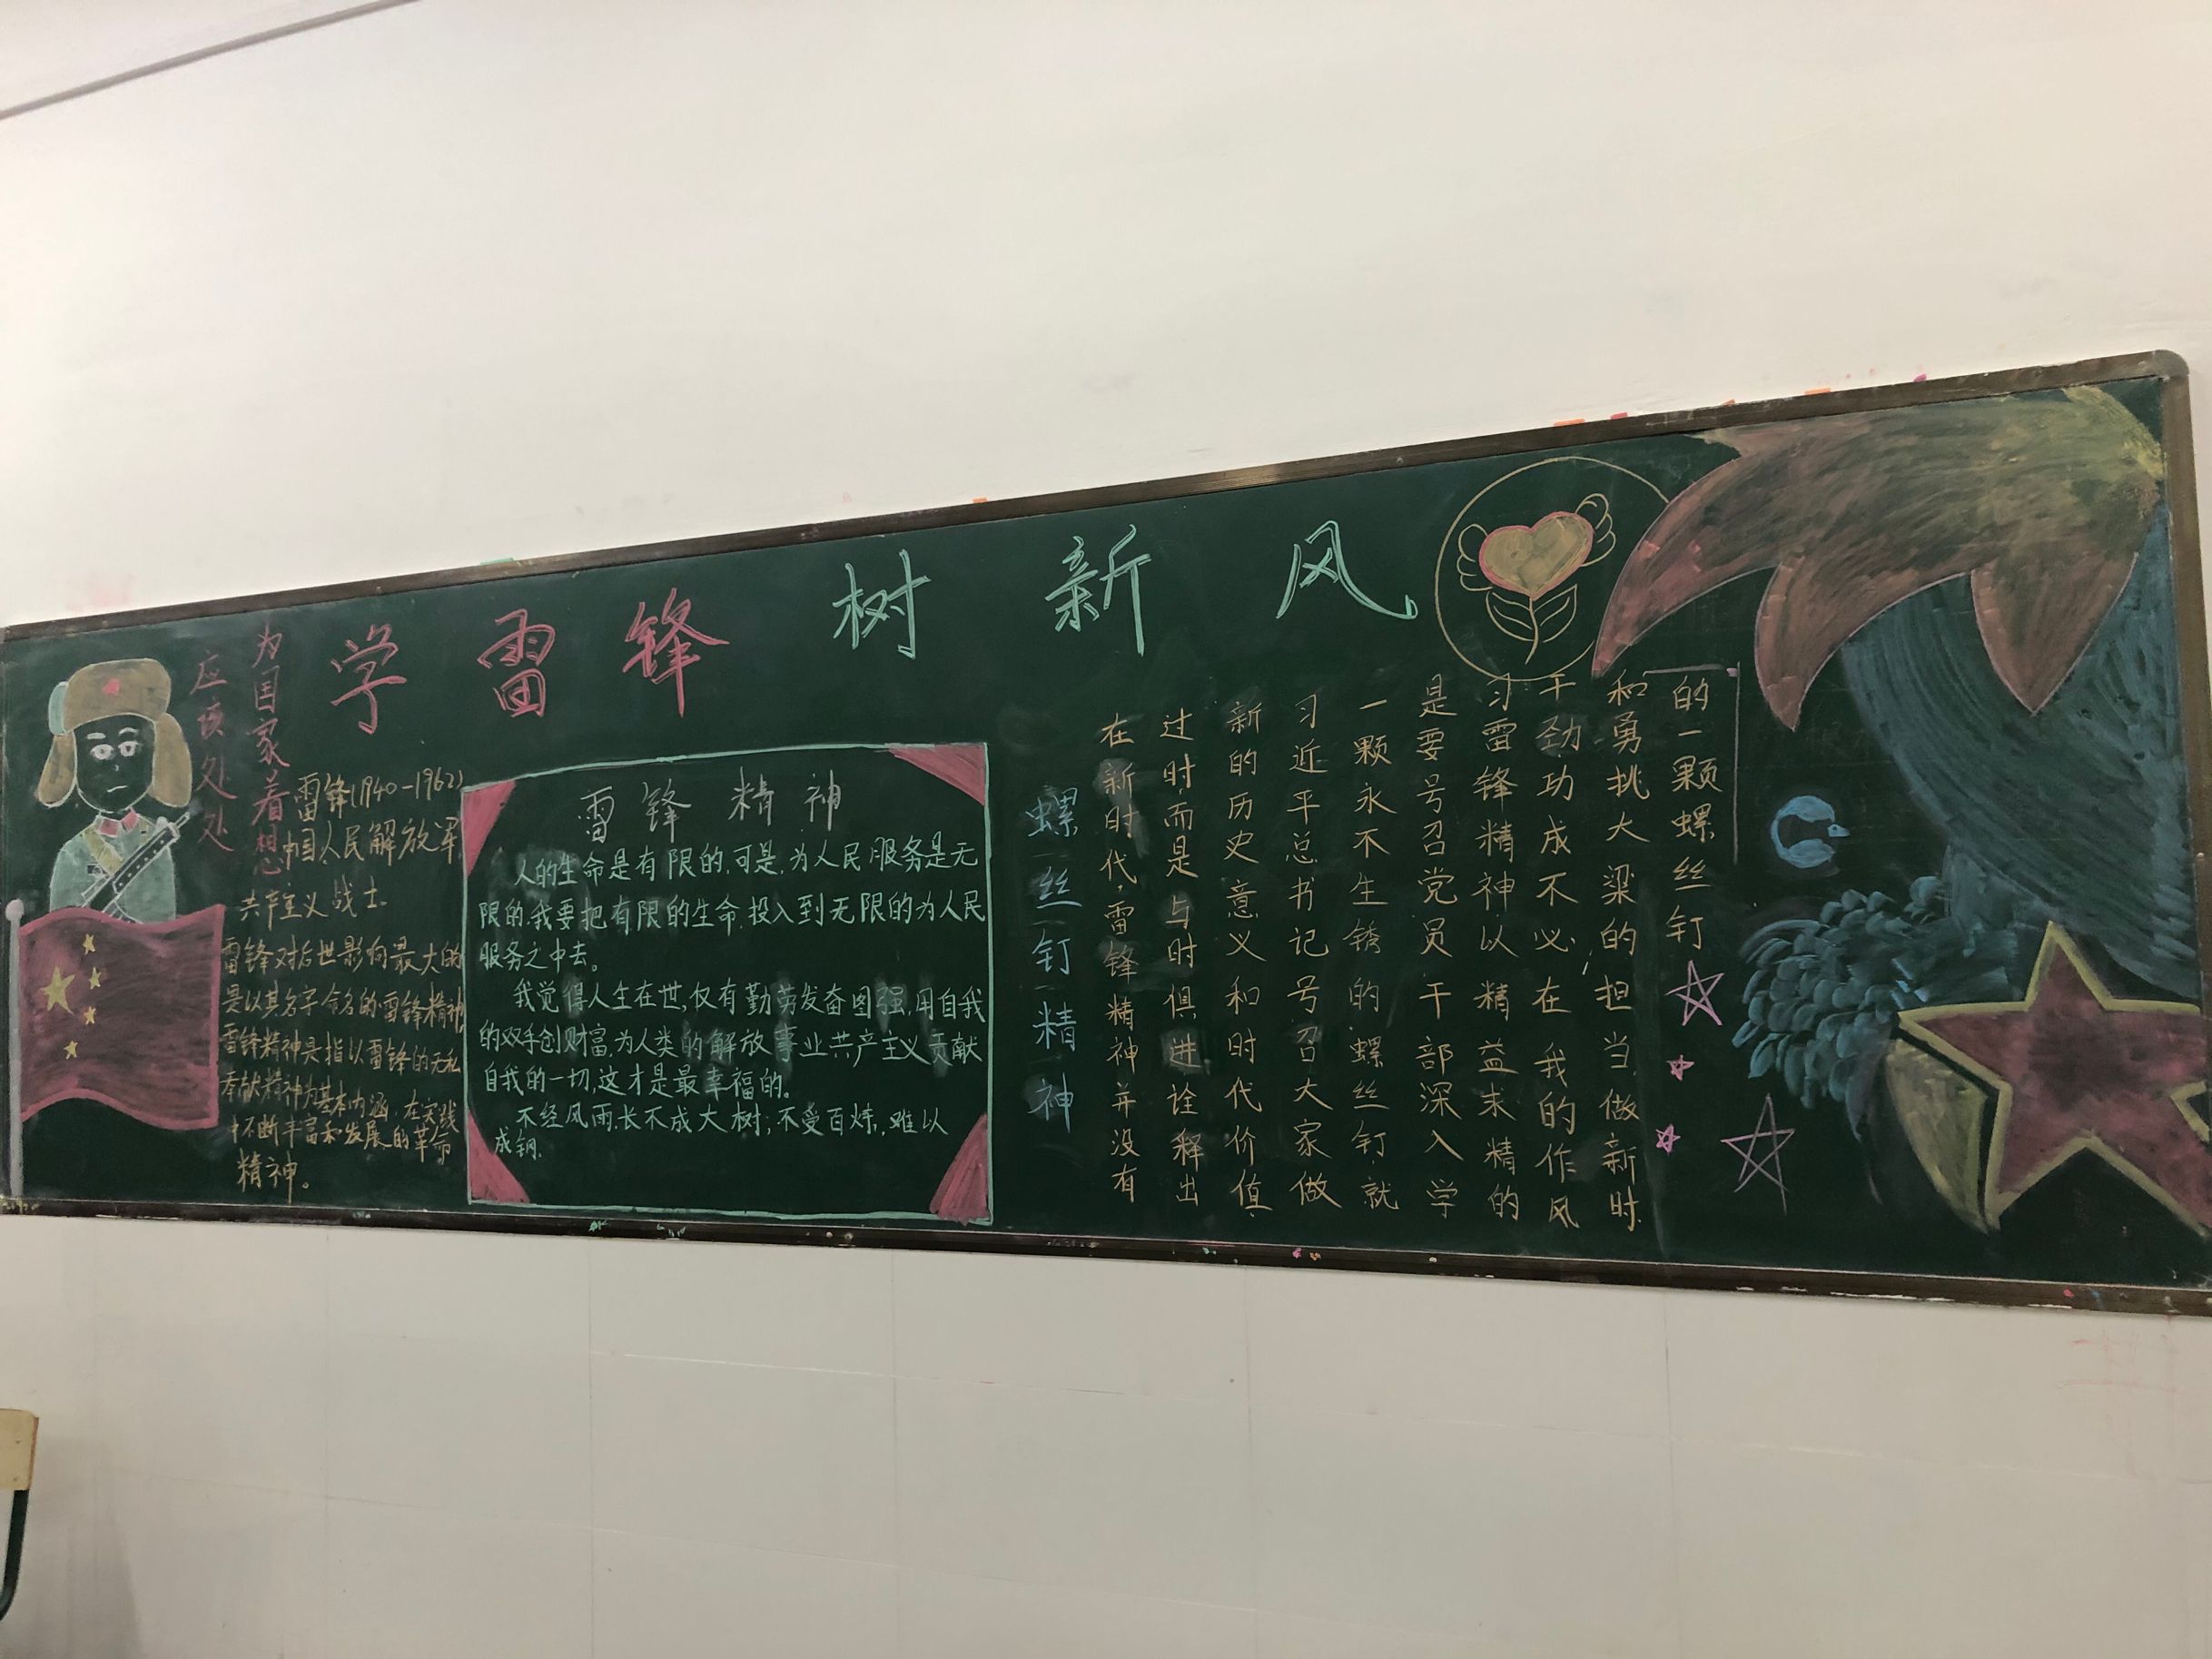 学雷锋 树新风
应该处处
为国家着想
雷锋(1940-1962)
中国人民解放军
共产主义战士.
雷锋对后世影响最大的
是以其名字命名的雷锋精神
雷锋精神是指以雷锋的无私
奉献精神为基本内涵,在实践
中不断丰富和发展的革命
精神。
雷锋精神
人的生命是有限的,可是,为人民服务是无
限的,我要把有限的生命,投入到无限的为人民
服务之中去。
我觉得人生在世,仅有勤劳发奋图强,用自我
的双手创财富,为人类的解放事业共产主义贡献
自我的一切,这才是最幸福的。
不经风雨,长不成大树;不受百炼,难以
成钢.
螺丝钉精神
在新时代,雷锋精神并没有
过时而是与时俱进诠释出
新的历史意义和时代价值,
习近平总书记号召大家做
一颗永不生锈的螺丝钉,就
是要号召党员干部深入学
习雷锋精神以精益求精的
干劲功成不必在我的作风
和勇挑大梁的担当,做新时
的一颗螺丝钉